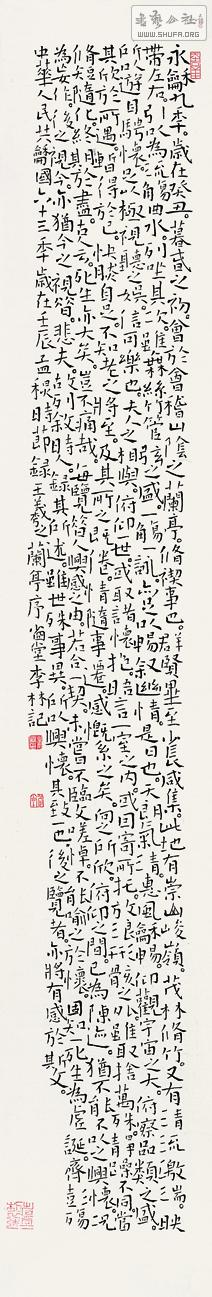 書藝公社
WWW.SHUFA.ORG
永龢九秊。歲在癸丑。暮春之初。會於會稽山陰之蘭亭。脩禊事也。群賢畢至。少長咸集。此地有崇山峻嶺。茂林脩竹。又有清流激湍。映
帶左右。引以為流觴曲水。列坐其次。雖無絲竹管弦之盛。一觴一詠。亦足以暢敘幽情。是日也。天朗氣清。惠風龢暢。仰觀宇宙之大。俯察品類之盛。
所以遊目騁懷。足以極視聽之娛。信可樂也。夫人之相與。俯仰一世。或取諸懷抱。晤言一室之內。或因寄所託。放浪形骸之外。雖取捨萬殊。靜躁不同。當
其欣於所遇。暫得於己。快然自足。不知老之將至。及其所之既倦。情隨事遷。感慨系之矣。向之所欣。俯仰之間。已為陳迹。猶不能不以之興懷。況
脩短隨化。終期於盡。古人云。死生亦大矣。豈不痛哉。每覽昔人興感之由。若合一契。未嘗不臨文嗟悼。不能喻之於懷。固知一死生為虛誕。齊彭殤
為妄作。後之視今。亦猶今之視昔。悲夫。故列敘時人。錄其所述。雖世殊事異。所以興懷。其致一也。後之覽者。亦將有感於斯文。
中華人民共龢國六十三秊歲在壬辰孟秋時節錄王羲之蘭亭序 李林記